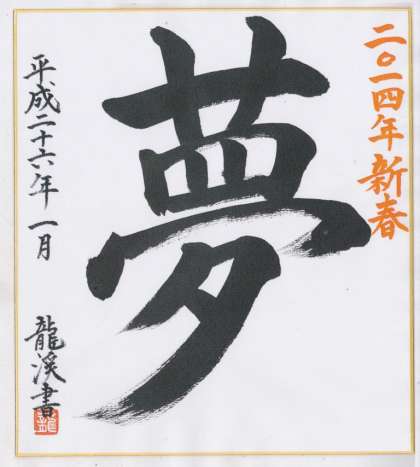 二〇一四年新春
夢
平成二十六年一月
龍渓書
龍